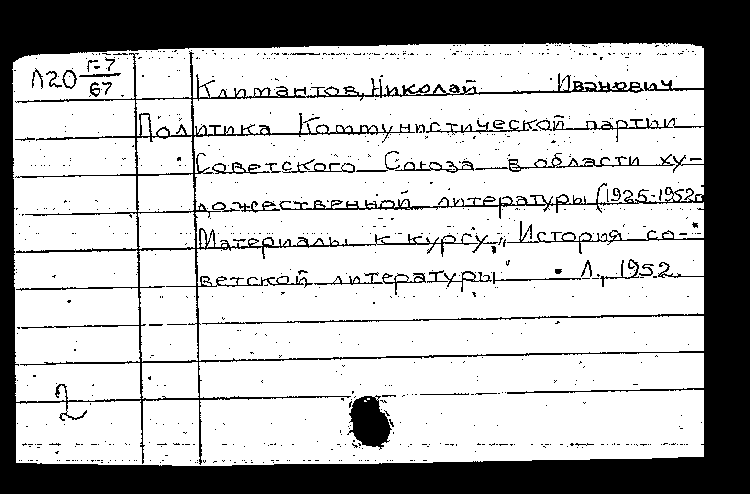 Л20 Г-7/67
Климантов, Николай Иванович
Политика Коммунистической партии
Советского Союза в области ху-
дожественной литературы (1925-1952гг)
Материалы к курсу „История со-
ветской литературы". Л., 1952.
2